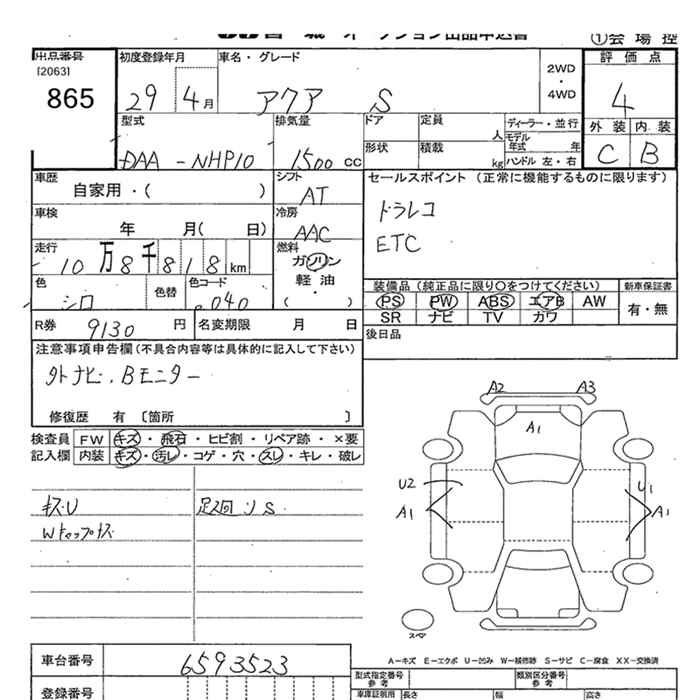 ション出品申込書
①会場控
出品番号
[2063]
865
初度登録年月
29 4月
車名・グレード
アクア S
2WD
・
4WD
評価点
4
外装 内装
C B
型式
DAA-NHP10
排気量
1500 cc
ドア
定員
人
ディーラー・並行
モデル年式 年
形状
積載
kg
ハンドル 左・右
車歴
自家用・( )
シフト
AT
セールスポイント (正常に機能するものに限ります)
ドラレコ
ETC
車検
年 月( 日)
冷房
AAC
走行
10万8千818km
燃料
ガソリン
軽油
( ・ )
色
シロ
色替
色コード
040
装備品(純正品に限り〇をつけてください)
新車保証書
PS PW ABS エアB AW
SR ナビ TV カワ
有・無
R券 9130 円
名変期限 月 日
後日品
注意事項申告欄(不具合内容等は具体的に記入して下さい)
外ナビ.Bモニター
修復歴 有 〔箇所 〕
検査員記入欄
FW キズ・飛石・ヒビ割・リペア跡・×要
内装 キズ・汚レ・コゲ・穴・スレ・キレ・破レ
キズU
足廻リS
A2 A3
A1
U2 U1
A1 A1
スペア
車台番号
6593523
登録番号
A−キズ E−エクボ U−凹み W−補修跡 S−サビ C−腐食 XX−交換済
型式指定番号
参考
類別区分番号
参考
車庫証明用 長さ 幅 高さ